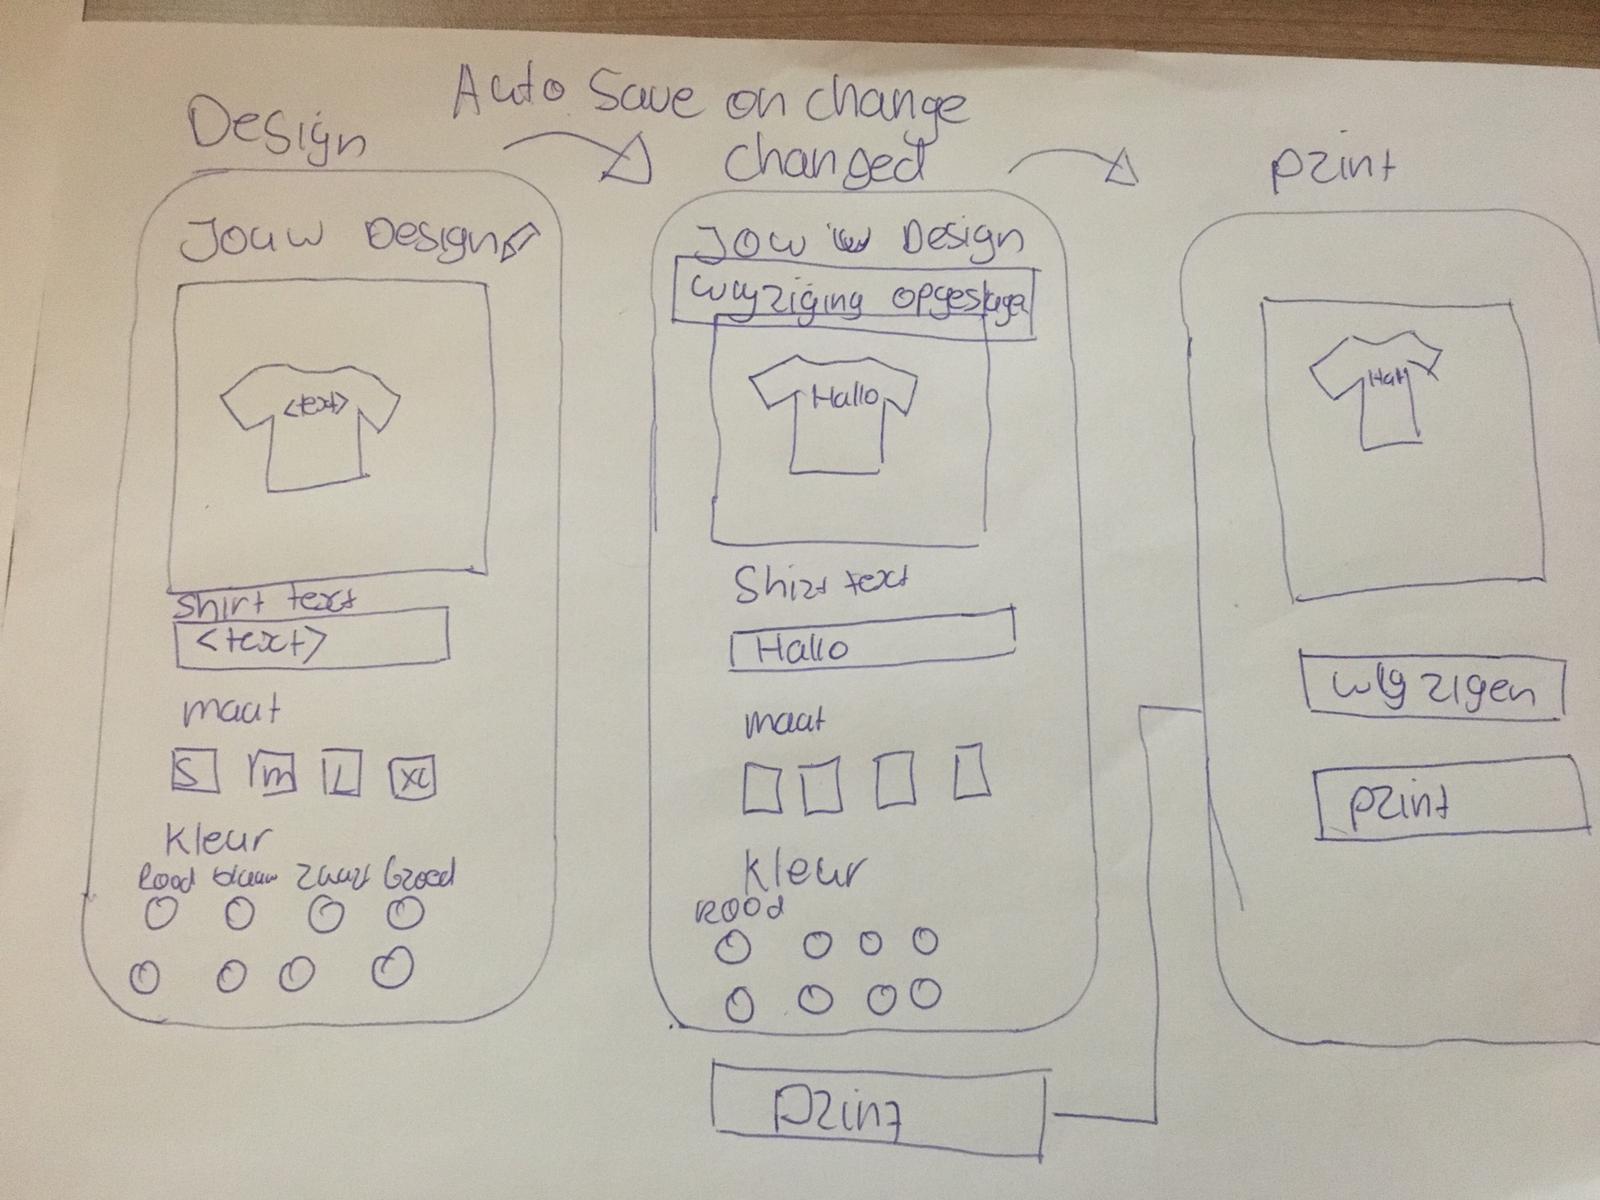 Auto Save on change
Design
changed
print
Jouw Design
<text>
Shirt text
<text>
maat
S m L XL
Kleur
Rood blauw zwart Groed
Jouw Design
wijziging opgeslagen
Hallo
Shirt text
Hallo
maat
Kleur
ROOD
print
Hall
wijzigen
print